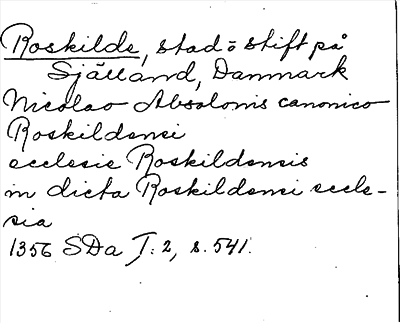 Roskilde, stad o stift på
Själland, Danmark
Nicolao Absolonis canonico
Roskildensi
ecclesie Roskildensis
in dicta Roskildensi eccle-
sia
1356 SDa J: 2, s. 541.